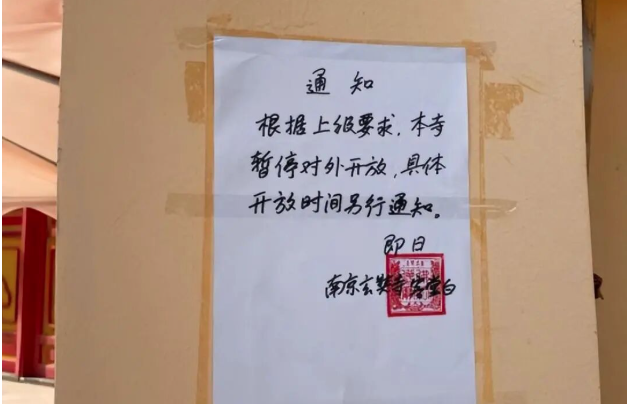 通知
根据上级要求，本寺
暂停对外开放，具体
开放时间另行通知。
即日
南京玄奘寺客堂白